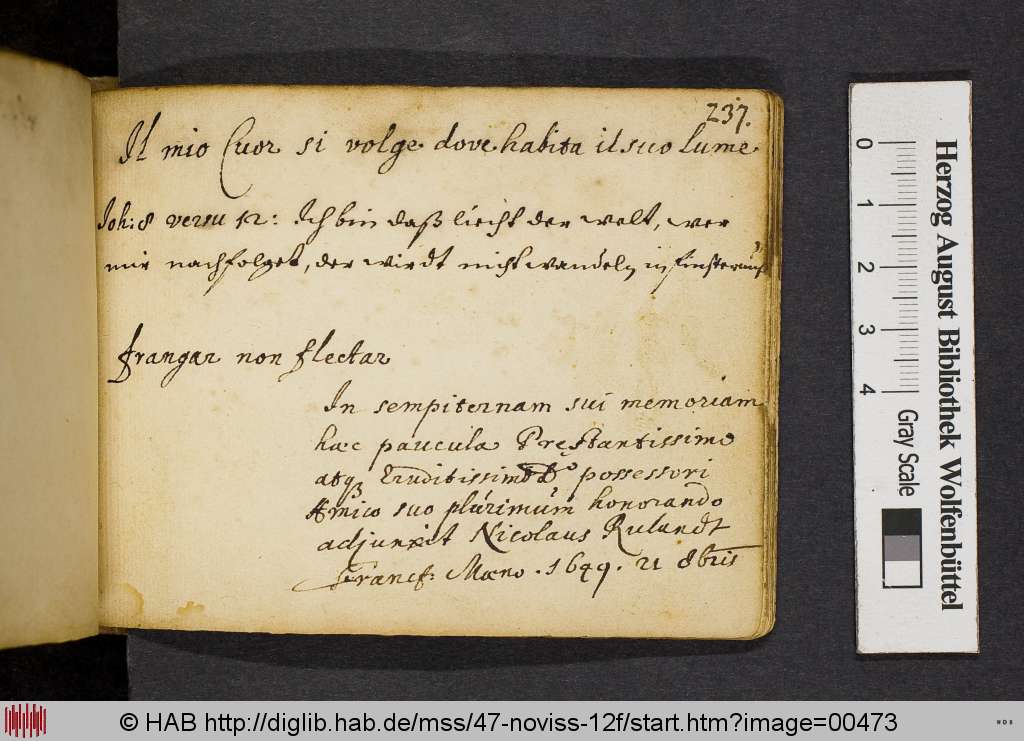 237.
Il mio Cuor si volge dove habita il suo lume
Joh: 8 versu 12: Ich bin daß liecht der welt, wer
mir nachfolget, der wirdt nicht wandeln in finsternuß
frangar non flectar
In sempiternam sui memoriam
hæc paucula Præstantissimo
atq3 Eruditissimo possessori
Amico suo plúrimúm honorando
adjunxit Nicolaus Rulandt
Francf: Mœno. 1649. 21 8bris
0 1 2 3 4
Gray Scale
Herzog August Bibliothek Wolfenbüttel
© HAB http://diglib.hab.de/mss/47-noviss-12f/start.htm?image=00473
WDB